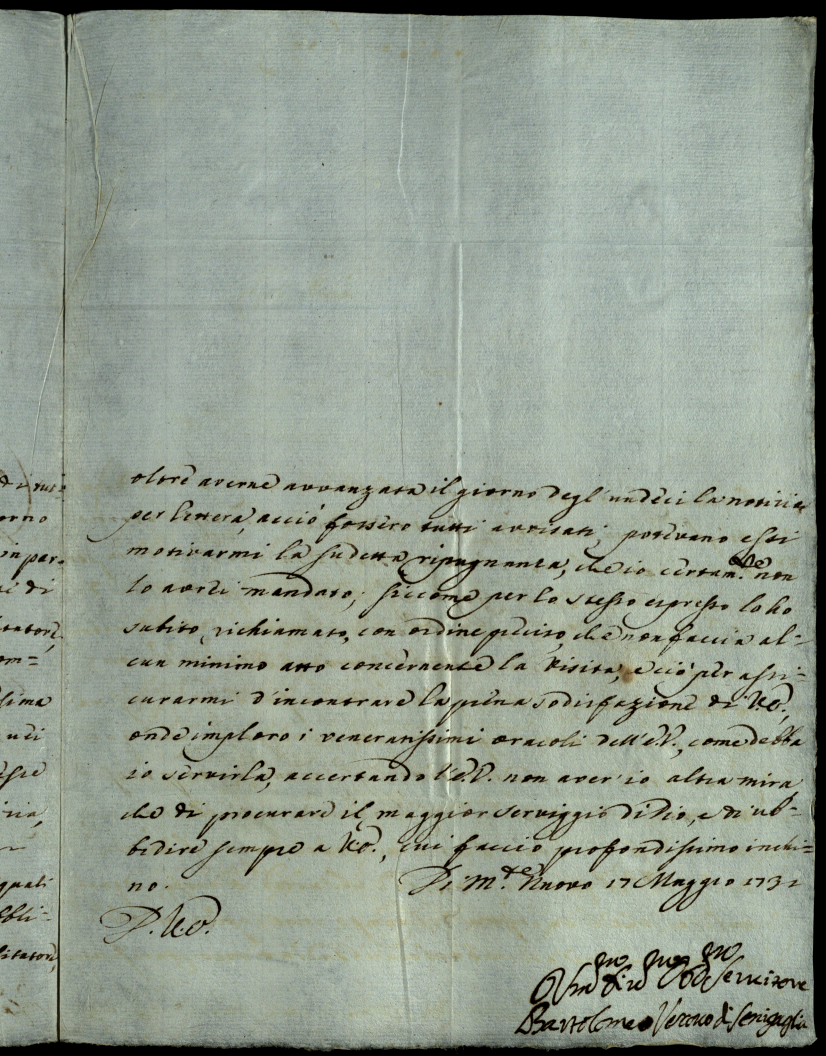 oltre averne avvanzata il giorno degl'undeci la notizia
per lettera, acciò fossero tutti avvisati; potevano essi
motivarmi la sudetta ripugnanza, che io certam.te non
lo avrei mandato; siccome per lo stesso espresso lo hò
subito richiamato, con ordine preciso, che non faccia al=
cun minimo atto concernente la Visita, e ciò per assi=
curarmi d'incontrare la piena sodisfazione di V.E.,
onde imploro i veneratissimi oracoli dell'E.V., come debba
io servirla, accertando l'E.V. non aver'io altra mira,
che di procurare il maggior serviggio di Dio, e di ub=
bidire sempre a V.E., cui faccio profondissimo inchi=
no. Di M.te Nuovo 17 Maggio 1732
D. V.E.
Um.mo Div.mo Obb.mo Servitore
Bartolomeo Vescovo di Senigaglia
di
orno
in par=
di
itatore,
om=
ssima
ria,
quali
bbli=
sitatore,